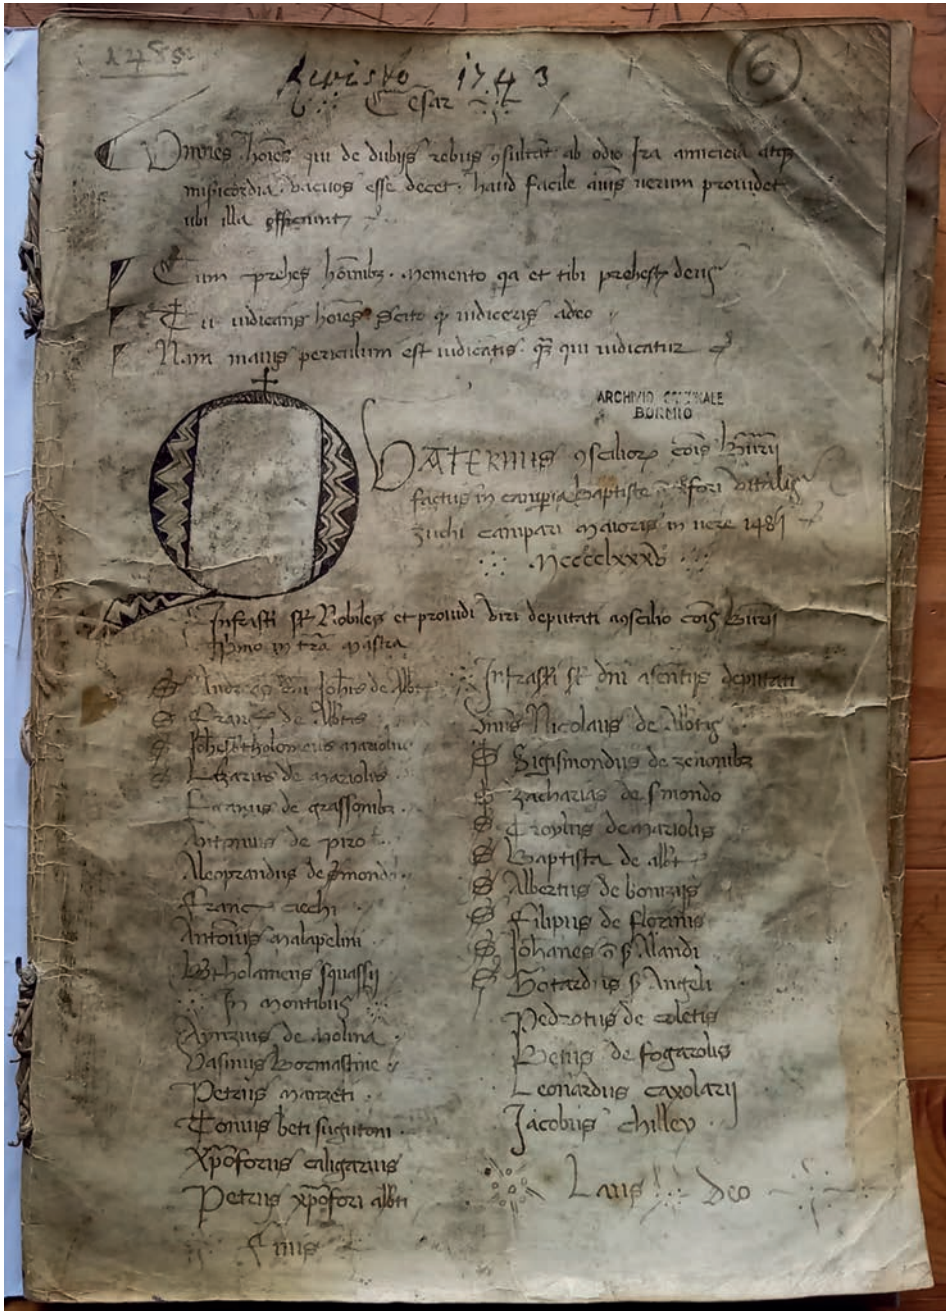 1485
Revisto 1743
6
Cesar
Omnes hoīes qui de dubijs rebus ꝯsultāt ab odio Ira amicicia atqꝫ
misicordia vacuos esse decet. haud facile aīus uerum prouidet
ubi illa officiunt
Cum prehes hoīnibꝫ. Memento qa et tibi prehest deus
Tu iudicans hoīes scito ꝙ iudiceris adeo
Nam maius periculum est iudicātis. qꝫ qui iudicatur
ARCHIVIO COMUNALE
BORMIO
QVATERNUS ꝯsilioꝝ cōis Burmij
factus in Baptiste xp̄fori Vitalis
zuchi canipari maioris in uere 1485
Mcccclxxxv
Infrasti st Nobiles et prouidi viri deputati ꝯscilio cōis Burmij
Andreas dnī Johīs de Albtis
Franc de Albtis
Johēs btholomeus mariolus
Lazarus de mariolis
de grassonibꝫ
Antonius de piro
Aleoprandus de smondo
Franc cechi
Antonius malapelini
Btholameus squassij
In montibus
de molina
Vasinus Bormastine
Petrus manzeti
Tonius beti sugutoni
Xp̄oforus caligarius
Petrus xp̄ofori albti
Finis
Infrasti st dnī asentijs deputati
Dnus Nicolaus de Albtis
Sigismondus de zenonibꝫ
Zacharias de smondo
Troylus de mariolis
Baptista de albt
Albertus de
Filipus de florinis
Johanes Alandi
Gotardus Angeli
Pedrotus de coletis
Betus de fogarolis
Leonardus caxolarij
Jacobus
Laus Deo